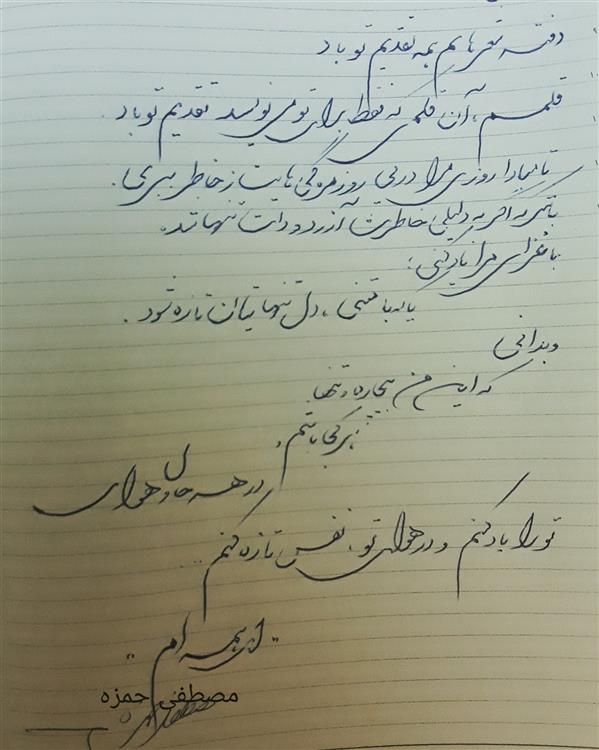 دفتر شعرهایم همه تقدیم تو باد
قلمم، آن قلمی که فقط برای تو می‌نویسد تقدیم تو باد.
تا مبادا روزی مرا در پی روزمرگی‌هایت از خاطر ببری.
یا که اگر به دلیلی خاطرت آزرده و دلت تنها شد.
با غزلی مرا یاد کنی؛
یا که با تلفنی، دل تنهایمان تازه شود.
و بدانی
که این من بیچاره و تنها
هر کجا باشم،
در هر حال و هوای
تو را یاد کنم و در هوای تو، نفس تازه کنم...
"ای همه ام"
مصطفی حمزه